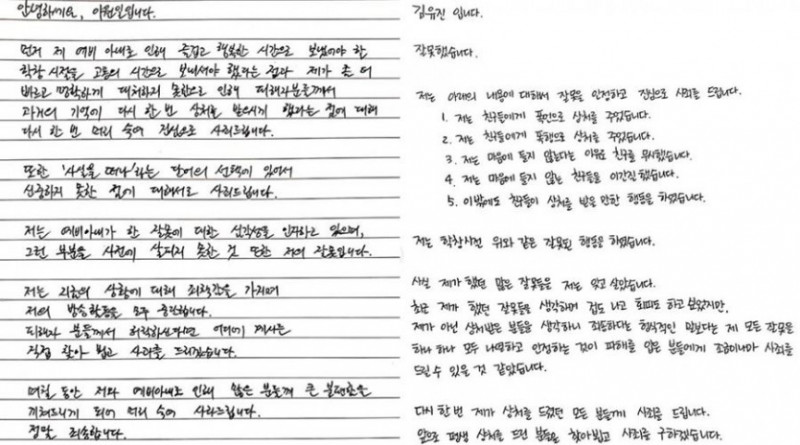 안녕하세요, 이원일입니다.
먼저 제 예비 아내로 인해 즐겁고 행복한 시간으로 보냈어야 한
학창 시절을 고통의 시간으로 보내셔야 했다는 점과 제가 좀 더
바르고 명확하게 대처하지 못함으로 인해 피해자분들께서
과거의 기억이 다시 한 번 상처를 받으시게 했다는 점에 대해
다시 한 번 머리 숙여 진심으로 사죄드립니다.
또한 '사실을 떠나'라는 단어의 선택이 있어서
신중하지 못한 점에 대해서도 사죄드립니다.
저는 예비아내가 한 잘못에 대한 심각성을 인지하고 있으며,
그런 부분을 사전에 살피지 못한 것 또한 저의 잘못입니다.
저는 지금의 상황에 대해 죄책감을 가지며
저의 방송활동을 모두 중단합니다.
피해자 분들께서 허락하신다면 어디에 계셔도
직접 찾아 뵙고 사죄를 드리겠습니다.
며칠 동안 저와 예비아내로 인해 많은 분들께 큰 불편함을
끼쳐드리게 되어 머리 숙여 사과드립니다.
정말 죄송합니다.
김유진 입니다.
잘못했습니다.
저는 아래의 내용에 대해서 잘못을 인정하고 진심으로 사죄를 드립니다.
1. 저는 친구들에게 폭언으로 상처를 주었습니다.
2. 저는 친구들에게 폭행으로 상처를 주었습니다.
3. 저는 마음에 들지 않는다는 이유로 친구를 무시했습니다.
4. 저는 마음에 들지 않는 친구들을 이간질 했습니다.
5. 이밖에도 친구들이 상처를 받을 만한 행동을 하였습니다.
저는 학창시절 위와 같은 잘못된 행동을 하였습니다.
사실 제가 했던 많은 잘못들을 저는 잊고 살았습니다.
최근 제가 했던 잘못들을 생각하며 겁도 나고 회피도 하고 싶었지만,
제가 아닌 상처받은 분들을 생각하니 죄송하다는 형식적인 말보다는 제 모든 잘못을
하나 하나 모두 나열하고 인정하는 것이 피해를 입은 분들에게 조금이나마 사죄를
드릴 수 있을 것 같았습니다.
다시 한 번 제가 상처를 드렸던 모든 분들에게 사죄를 드립니다.
앞으로 평생 상처를 드린 분들을 찾아뵙고 사죄를 구하겠습니다.